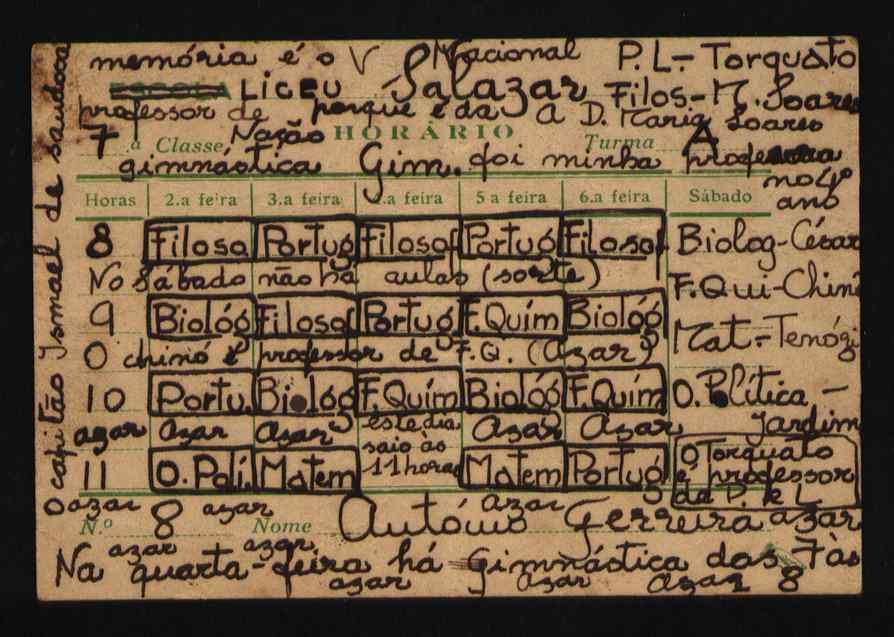 memória é o V Nacional P.L - Torquato
LICEU Salazar Filos - M. Soares
professor de porque é da A D. Maria Soares
7.ª Classe Nação HORÁRIO Turma A
gimnástica Gim. foi minha professora
no 4º
ano
Horas 2.a feira 3.a feira 4.a feira 5 a feira 6.a feira Sábado
8 Filoso Portug Filosof Portug Filosof Biolog-César
No sábado não há aulas (sorte) F.Qui-Chinó
9 Biológ Filosof Portug F.Quím Biológ Mat-Tenózi
O chinó é professor de F.Q. (Azar)
10 Portu. Biológ F.Quím Biológ F.Quím O.Política -
Jardim
azar azar azar este dia azar azar
saio às
11 horas
11 O.Polí. Matem Matem Portug
O Torquato
é professor
de P. e L
azar azar azar
N.º 8 Nome António Ferreira azar
azar azar
Na quarta-feira há gimnástica das 7 às
8
azar azar azar
O capitão Ismael de saudosa